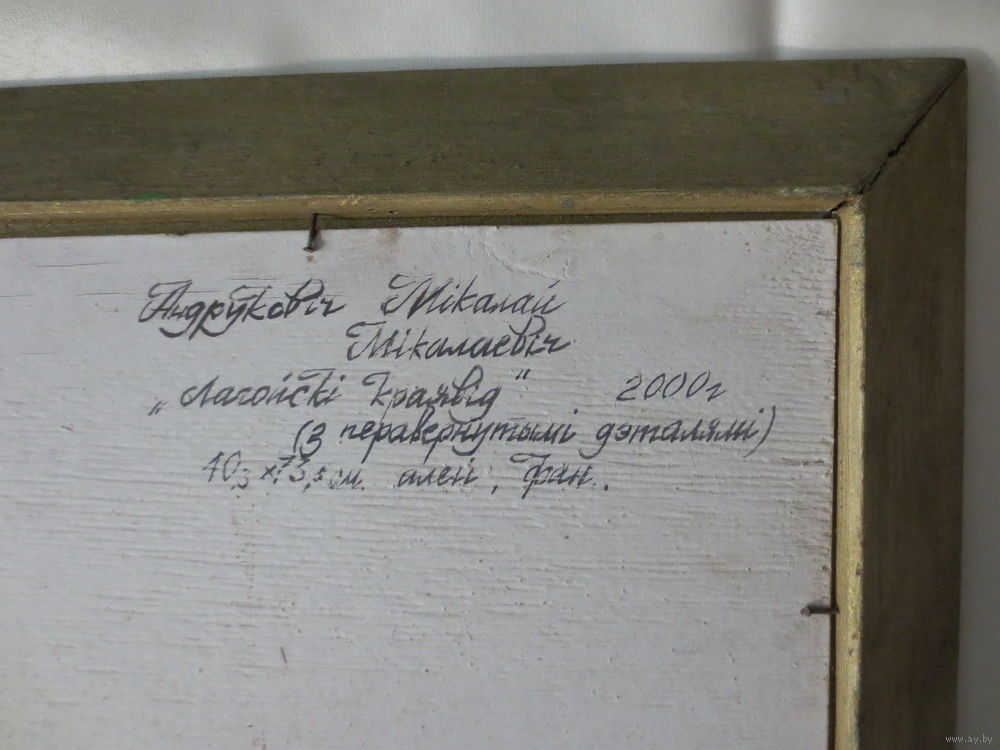 Андруковіч Мікалай
Мікалаевіч
„Лагойскі краявід" 2000г
(з перавернутымі дэталямі)
40,3 х 73,5 см. алей, фан.
www.ay.by